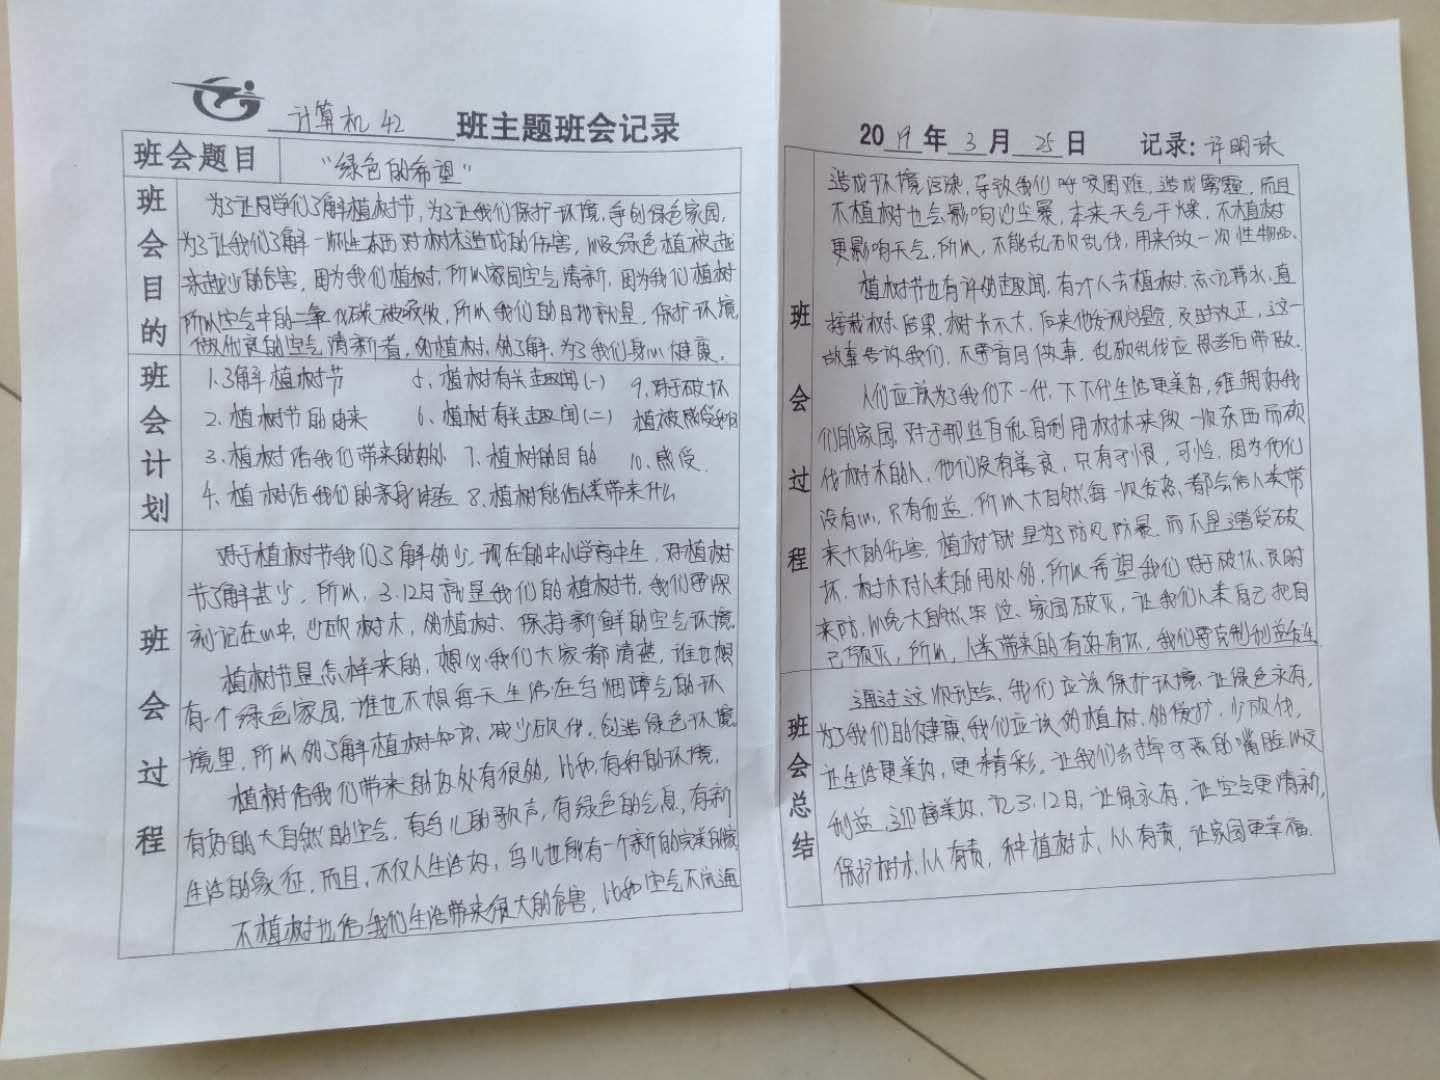 计算机42 班主题班会记录
班会题目 "绿色的希望"
班会目的
为了让同学们了解植树节,为了让我们保护环境,争创绿色家园,
为了让我们了解一次性东西对树木造成的伤害,以及绿色植被越
来越少的危害,因为我们植树,所以家园空气清新,因为我们植树
所以空气中的二氧化碳被吸收,所以我们的目的就是,保护环境
做优良的空气清新者,多植树,多了解,为了我们身心健康。
班会计划
1.了解植树节 5、植树有关趣闻(一) 9、对于破坏
2、植树节的由来 6、植树有关趣闻(二) 植被感受和
3、植树给我们带来的好处 7、植树的目的 10、感受
4、植树给我们的亲身体验 8、植树能给人类带来什么
班会过程
对于植树节我们了解多少,现在的中小学高中生,对植树
节了解甚少,所以,3.12日就是我们的植树节,我们要深
刻记在心中,少砍树木,多植树、保持新鲜的空气环境。
植树节是怎样来的,想必我们大家都清楚,谁也想
有一个绿色家园,谁也不想每天生活在乌烟障气的环
境里,所以多了解植树知识,减少砍伐,创造绿色环境。
植树给我们带来的好处有很多,比如,有好的环境,
有好的大自然的空气,有鸟儿的歌声,有绿色的气息,有新
生活的象征,而且,不仅人生活好,鸟儿也能有一个新的完美的家
不植树也给我们生活带来很大的危害,比如空气不流通
2019年3月25日 记录: 许明珠
班会过程
造成环境污染,导致我们呼吸困难,造成雾霾,而且
不植树也会影响沙尘暴,本来天气干燥,不植树
更影响天气,所以,不能乱砍乱伐,用来做一次性物品。
植树节也有许多趣闻,有个人去植树,忘记带水,直
接栽树,结果,树长不大,后来他发现问题,及时改正,这一
故事告诉我们,不要盲目做事,乱砍乱伐应思考后带做。
人们应该为了我们下一代,下下代生活更美好,维拥好我
们的家园,对于那些自私自利用树木来做一次东西而砍
伐树木的人,他们没有善良,只有可恨,可怜,因为他们
没有心,只有利益,所以大自然每一次发怒,都会给人类带
来大的伤害,植树就是为了防风防暴,而不是遭受破
坏,树木对人类的用处多,所以希望我们对于破坏,及时
来防,以免大自然突变、家园破灭,让我们人类自己把自
己颁灭,所以,人类带来的有好有坏,我们要克制利益
班会总结
通过这次班会,我们应该保护环境,让绿色永存,
为了我们的健康,我们应该多植树,多保护,少砍伐,
让生活更美好,更精彩,让我们去掉可恶的嘴脸以及
利益,迎接美好,记3.12日,让绿永存,让空气更清新,
保护树木,从人有责,种植树木,从人有责,让家园更幸福.